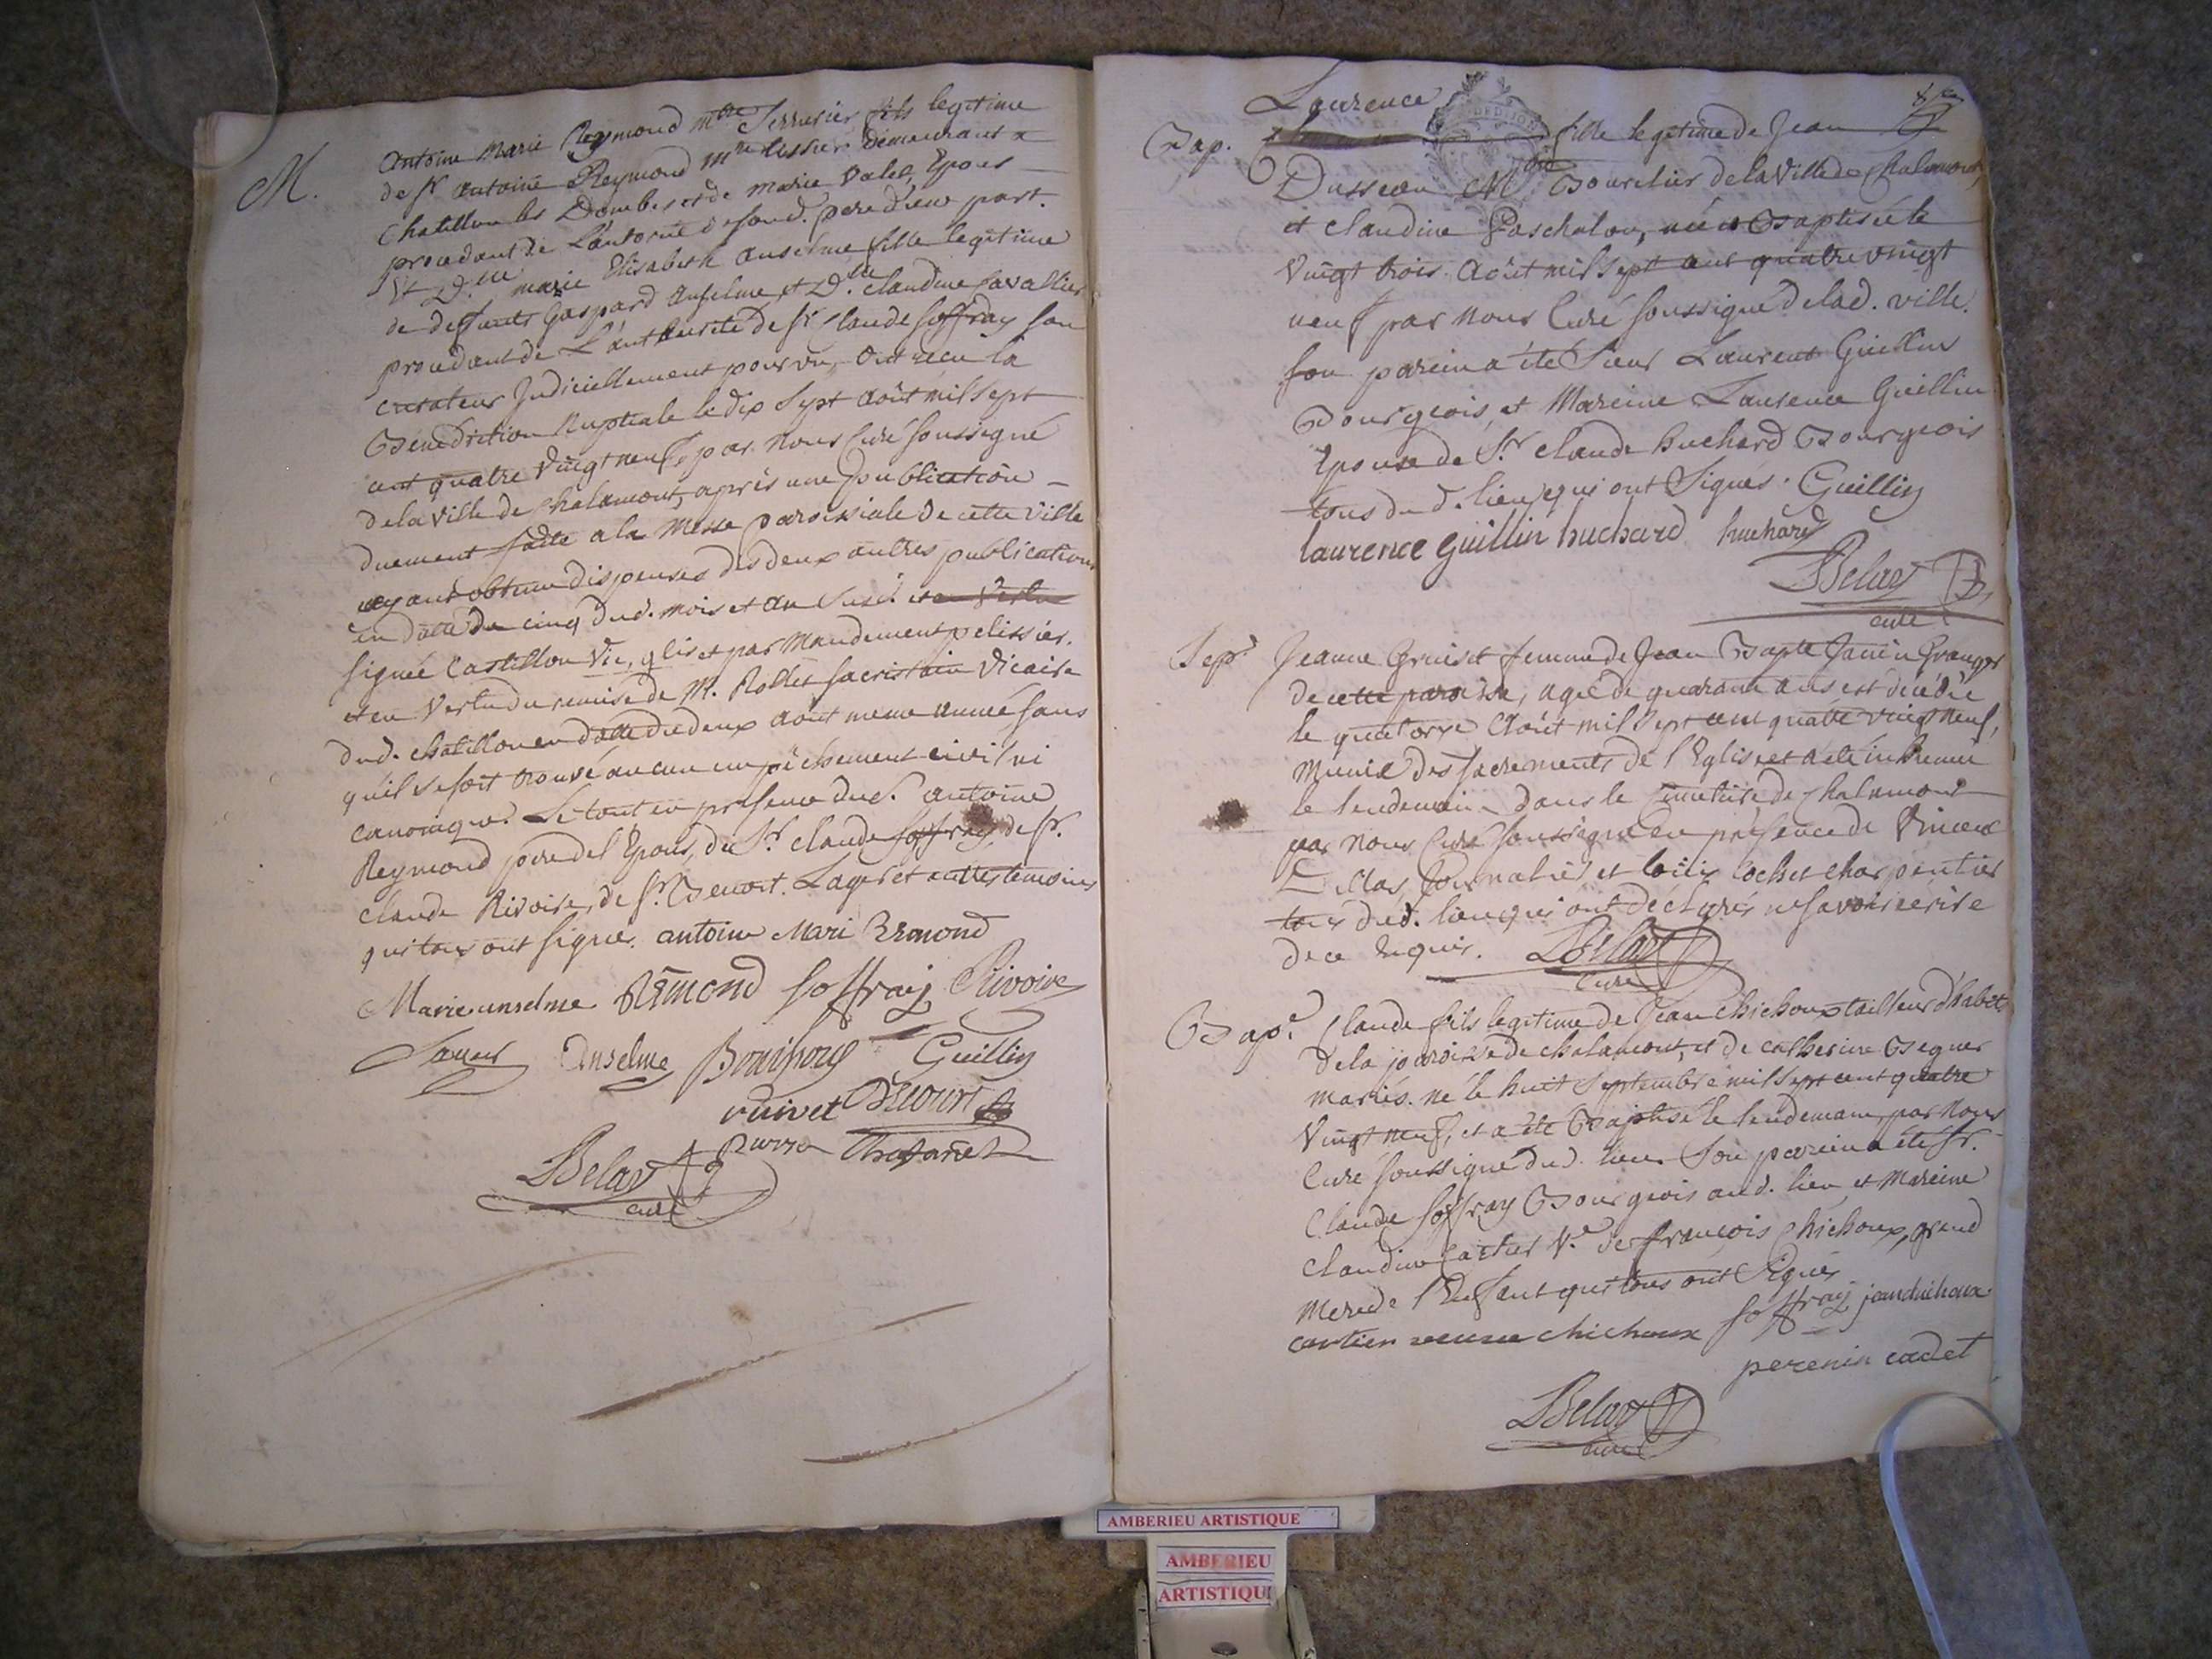 M.
Antoine Marie Reymond mtre Serrurier fils legitime
de Sr antoine Reymond Mtre tissier demeurant a
Chatillon les Dombes et de marie Valet, Epoux
procedant de L'autorité de sond. pere d'une part.
Et D.lle marie Elisabeth Anselme fille legitime
de defunts Gaspard Anselme et D.lle Claudine Cavallier
procedant de L'authorité de Sr Claude Soffray son
curateur Judiciellement pourvu, ont reçu la
Bénédiction Nuptiale le dix Sept Août mil Sept
cent quatre Vingt neuf, par Nous Curé soussigné
de la Ville de Chalamont, après une publication
duement faite a la Messe paroissiale de cette Ville
ayant obtenu dispenses des deux autres publications
en datte du cinq dud. mois et an Susd.
signée Castillon Vic. glis et par Mandement pelissier.
et en Vertu du remise de M. Rollet sacristain Vicaire
dud. chatillon en datte du deux aout meme année sans
qu'il se soit trouvé aucun empêchement civil ni
canonique. Le tout en presence dud. Sr antoine
Reymond pere de l'Epoux, de Sr. Claude Soffray, de Sr.
Claude Rivoire, de Sr. Benoit et autres temoins
qui tous ont signés. antoine Mari Remond
Marie anselme Remond Soffray Rivoire
Anselme Guillin
ruivet
Belay
curé
Laurence
Bap. fille legitime de Jean
Dusseau Md Bourelier de la Ville de Chalamont,
et Claudine Paschalon, née et Baptisée le
Vingt trois Août mil Sept cent quatre vingt
neuf par Nous Curé soussigné de lad. ville.
son parein a été Sieur Laurent Guillin
Bourgeois, et Mareine Laurence Guillin
Epouse de Sr. Claude huchard Bourgeois
tous dud. lieu, qui ont Signés. Guillin
laurence guillin huchard huchard
Belay
curé
Sep.e Jeanne femme de Jean Bapte Janin Granger
de cette paroisse, agée de quarante ans est décédée
le quatorze Août mil Sept cent quatre vingt neuf,
munie des sacrements de l'Eglise et a été inhumée
le lendemain dans le Cimetiere de Chalamont
par Nous Curé soussigné en presence de Vincent
Journalier et Cochet charpentier
tous dud. lieu qui ont déclarés ne savoir écrire
de ce Enquis. Belay
curé
Bap.e Claude fils legitime de Jean Chichoux tailleur d'habits
de la paroisse de chalamont, et de catherine
mariés. né le huit Septembre mil Sept cent quatre
Vingt neuf, et a été Baptisé le lendemain, par Nous
Curé soussigné dud. lieu. Son parein a été Sr.
Claude Soffray Bourgeois aud. lieu et Mareine
Claudine Cartier Ve. de françois Chichoux, grand
mere de l'Enfant qui tous ont Signés
cartier veuve chichoux Soffray jean chichoux
perenin cadet
Belay
curé
AMBERIEU ARTISTIQUE
AMBERIEU
ARTISTIQU